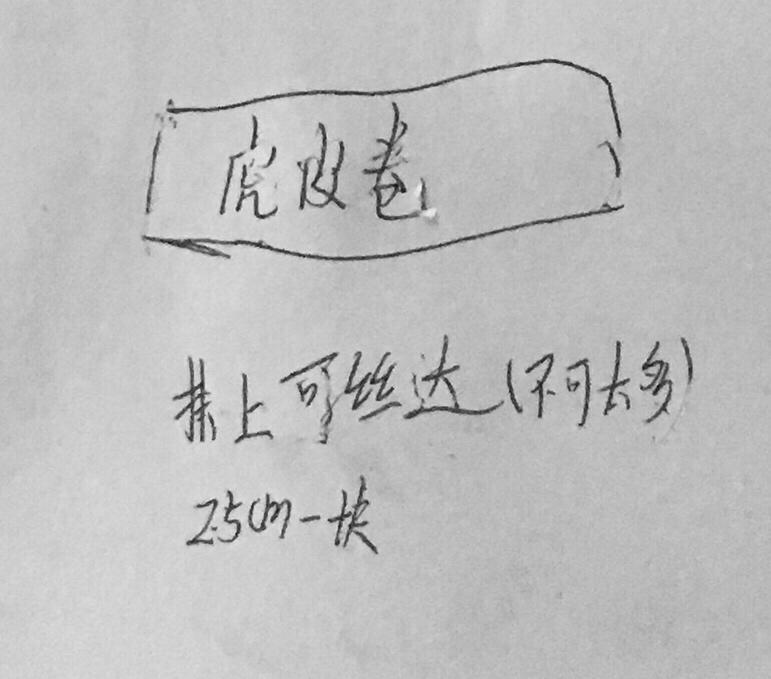 虎皮卷
挤上可丝达(不可太多)
2.5cm一块